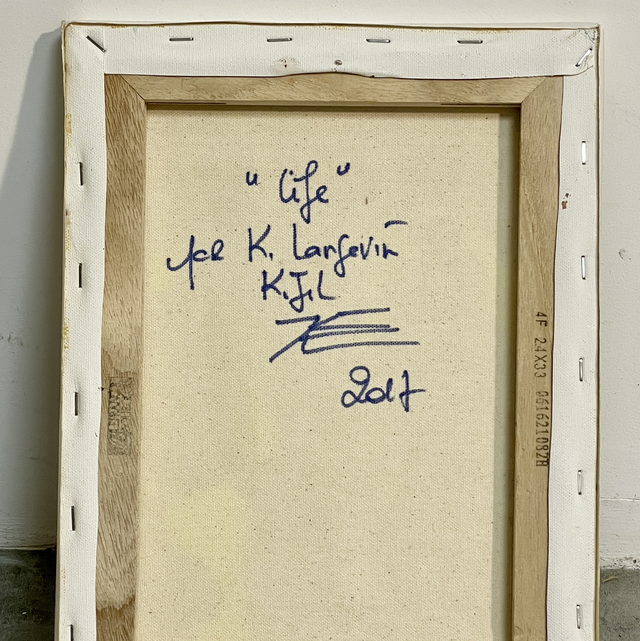 "Life"
K. Langevin
K.J.L
2017
4F 24X33 061621082H